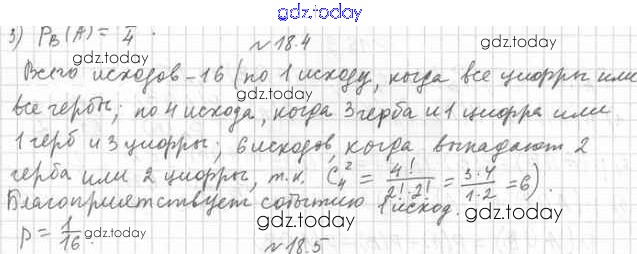 gdz.today
3) P_B(A) = 1/4.
gdz.today
№18.4
gdz.today
Всего исходов - 16 (по 1 исходу, когда все цифры или
gdz.today
все гербы; по 4 исхода, когда 3 герба и 1 цифра или
1 герб и 3 цифры; 6 исходов, когда выпадают 2
gdz.today
gdz.today
герба или 2 цифры, т.к. C_4^2 = 4!/(2!·2!) = (3·4)/(1·2) = 6).
gdz.today
Благоприятствует событию 1 исход.
gdz.today
P = 1/16.
gdz.today
№18.5
gdz.today